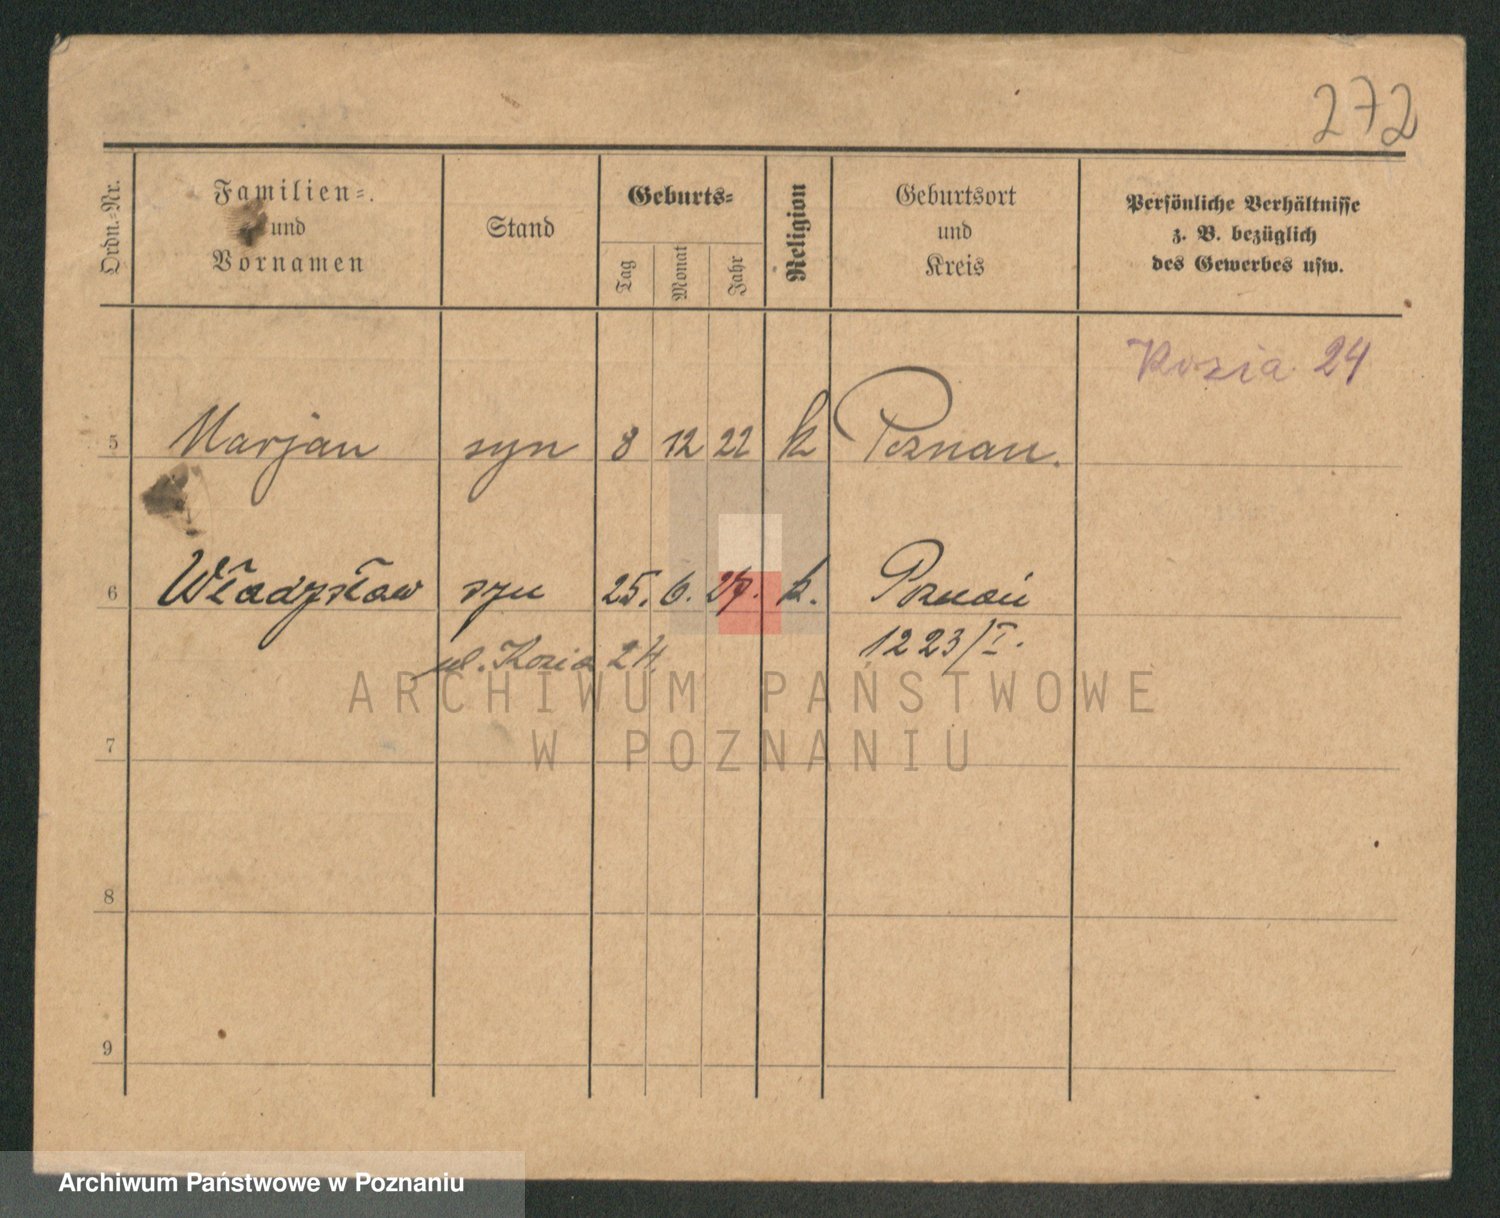 272
Ordn.=Nr.
Familien=
und
Vornamen
Stand
Geburts=
Tag
Monat
Jahr
Religion
Geburtsort
und
Kreis
Persönliche Verhältnisse
z. B. bezüglich
des Gewerbes usw.
Kozia 24
5 Marjan syn 8 12 22 k Poznan.
6 Władysław syn 25. 6. k. Poznań
ul. Kozia 24. 1223/I.
ARCHIWUM PAŃSTWOWE
W POZNANIU
7
8
9
Archiwum Państwowe w Poznaniu